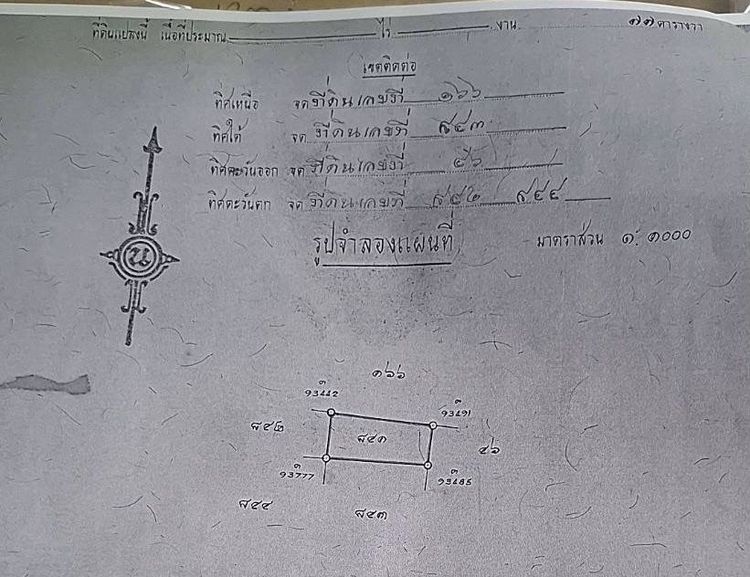 ที่ดินแปลงนี้ เนื้อที่ประมาณ ไร่ งาน ๑๑ ตารางวา
เขตติดต่อ
ทิศเหนือ จด ที่ดินเลขที่ ๑๖๖
ทิศใต้ จด ที่ดินเลขที่ ๘๔๓
ทิศตะวันออก จด ที่ดินเลขที่ ๔๖
ทิศตะวันตก จด ที่ดินเลขที่ ๘๔๒ ๘๔๔
รูปจำลองแผนที่ มาตราส่วน ๑:๑๐๐๐
น
๑๖๖
93442
93491
๘๔๒
๘๔๑
๔๖
93777
93485
๘๔๔
๘๔๓